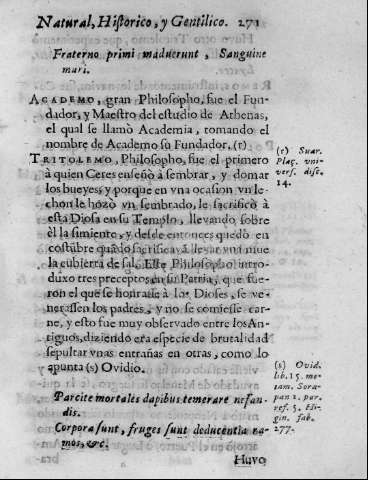 Natural, Historico, y Gentilico. 271
Fraterno primi maduerunt, Sanguine
muri.
ACADEMO, gran Philosopho, fue el Fun-
dador, y Maestro del estudio de Athenas,
el qual se llamò Academia, tomando el
nombre de Academo su Fundador. (r)
(r) Suar.
Plaç. vni-
vers. disc.
14.
TRITOLEMO, Philosopho, fue el primero
à quien Ceres enseñò à sembrar, y domar
los bueyes; y porque en vna ocasion vn le-
chon le hozò vn sembrado, le sacrificò à
esta Diosa en su Templo, llevando sobre
èl la simiente, y desde entonces quedò en
costũbre quãdo sacrificavã llevar vna mue
la cubierta de sal. Este Philosopho intro-
duxo tres preceptos en su Patria, que fue-
ron el que se honrasse à los Dioses, se ve-
nerassen los padres, y no se comiesse car-
ne, y esto fue muy observado entre los An-
tiguos, diziendo era especie de brutalidad
sepultar vnas entrañas en otras, como lo
apunta (s) Ovidio.
(s) Ovid.
lib. 15. me-
tam. Sora-
pan 2. par.
ref. 5. Hi-
gin. fab.
277.
Parcite mortales dapibus temerare nefan-
dis.
Corpora sunt, fruges sunt deducentia ra-
mos, &c.
Huvo